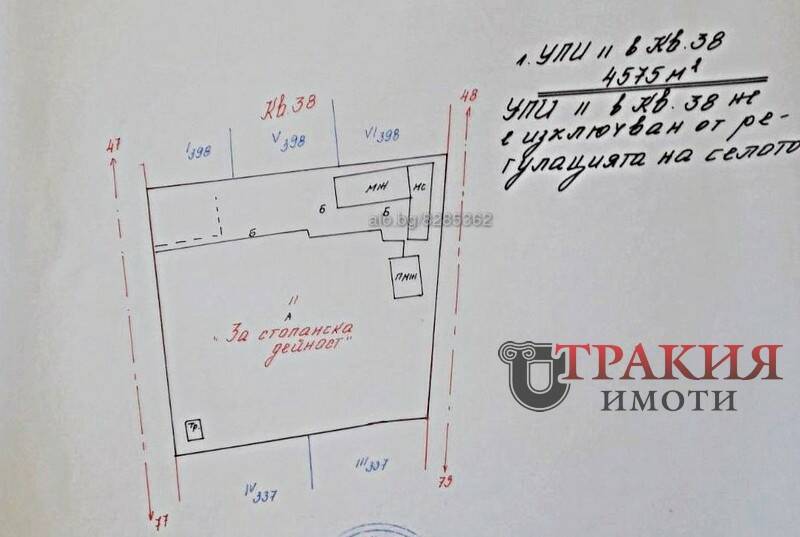 1. УПИ II в Кв. 38
4575 м²
УПИ II в Кв. 38 не
е изключван от ре-
гулацията на селото
Кв. 38
48
47
I 398
V 398
VI 398
МЖ
МС
Б
Б
Б
alo.bg/8285362
ПМЖ
II
А
"За стопанска
дейност"
ТРАКИЯ
ИМОТИ
Тр.
IV 337
III 337
77
79